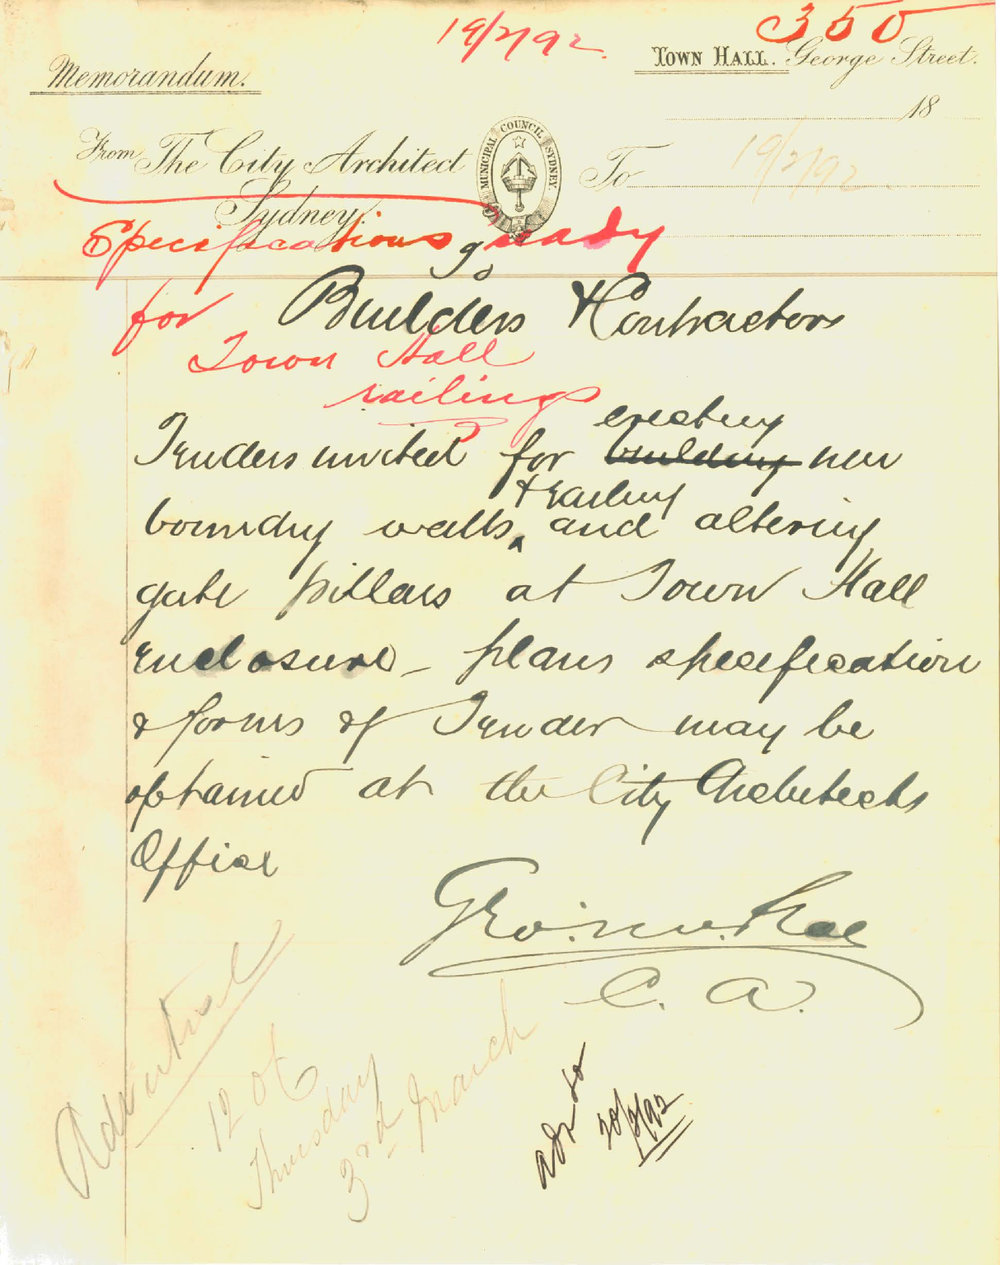 19/2/92
350
Memorandum.
TOWN HALL. George Street.
18
From The City Architect
Sydney.
MUNICIPAL COUNCIL SYDNEY.
To
19/2/92
Specifications ready
for
Town Hall
railings
Builders & Contractors
erecting
Tenders invited for building new
& railing
boundry walls, and altering
gate pillars at Town Hall
Enclosure – plans specification
& forms of Tender may be
obtained at the City Architects
Office
Geo. McRae
C. A.
12 Oc
Thursday
3rd March
adv to
20/2/92